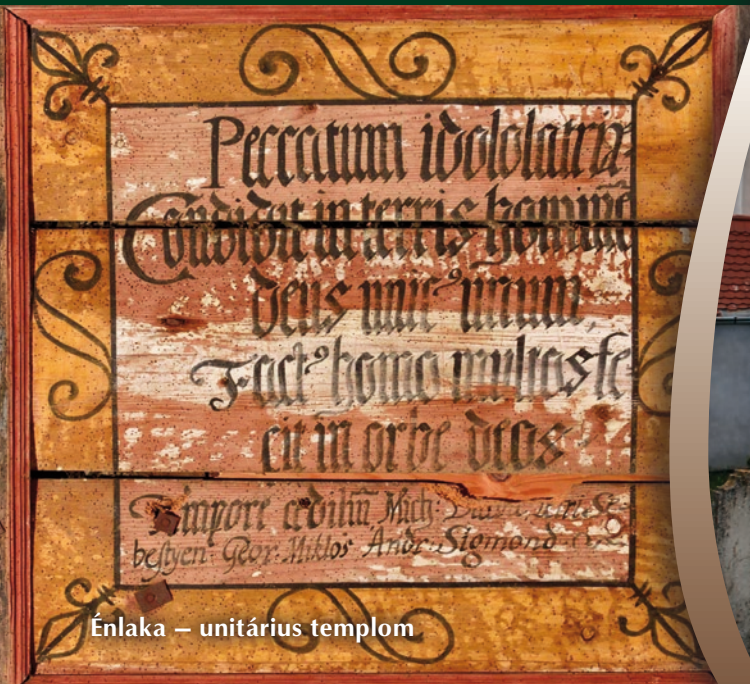 Peccatum idololatriæ
Condidit in terris hominē
deus unic⁹ unum.
Fact⁹ homo multos fe
cit in orbe deos
Tempore ædiliū Mich:
bestyen. Geor. Miklos Andr: Sigmond
Énlaka – unitárius templom